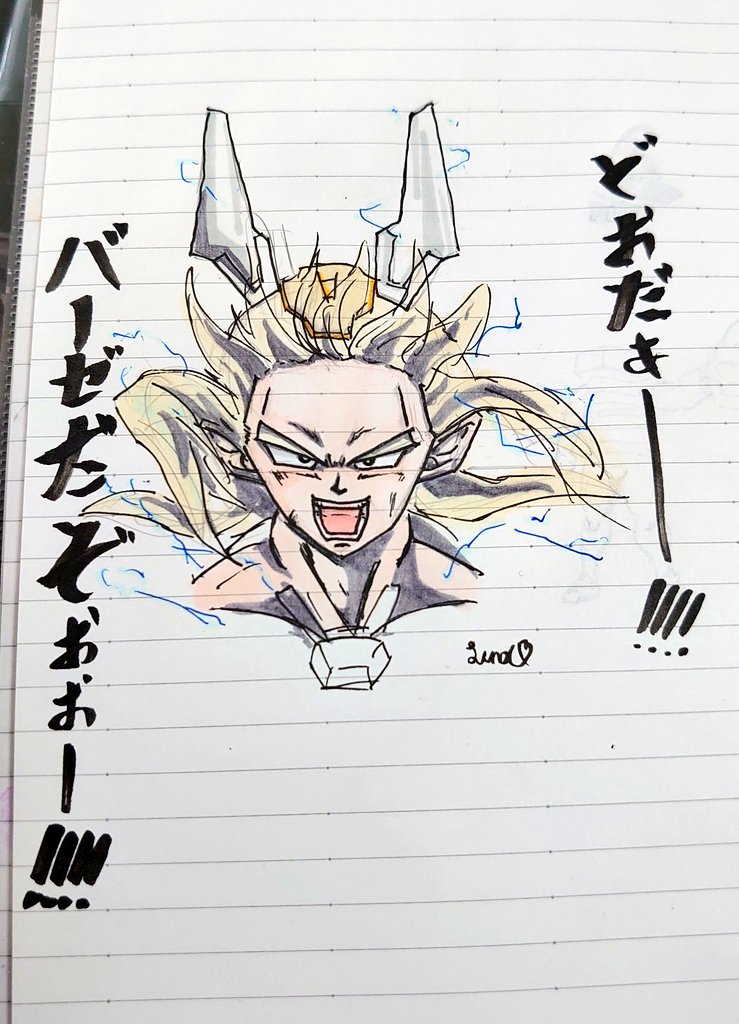 どおだぁー!!!!
バーゼだぞぉおー!!!!!
Luna♡